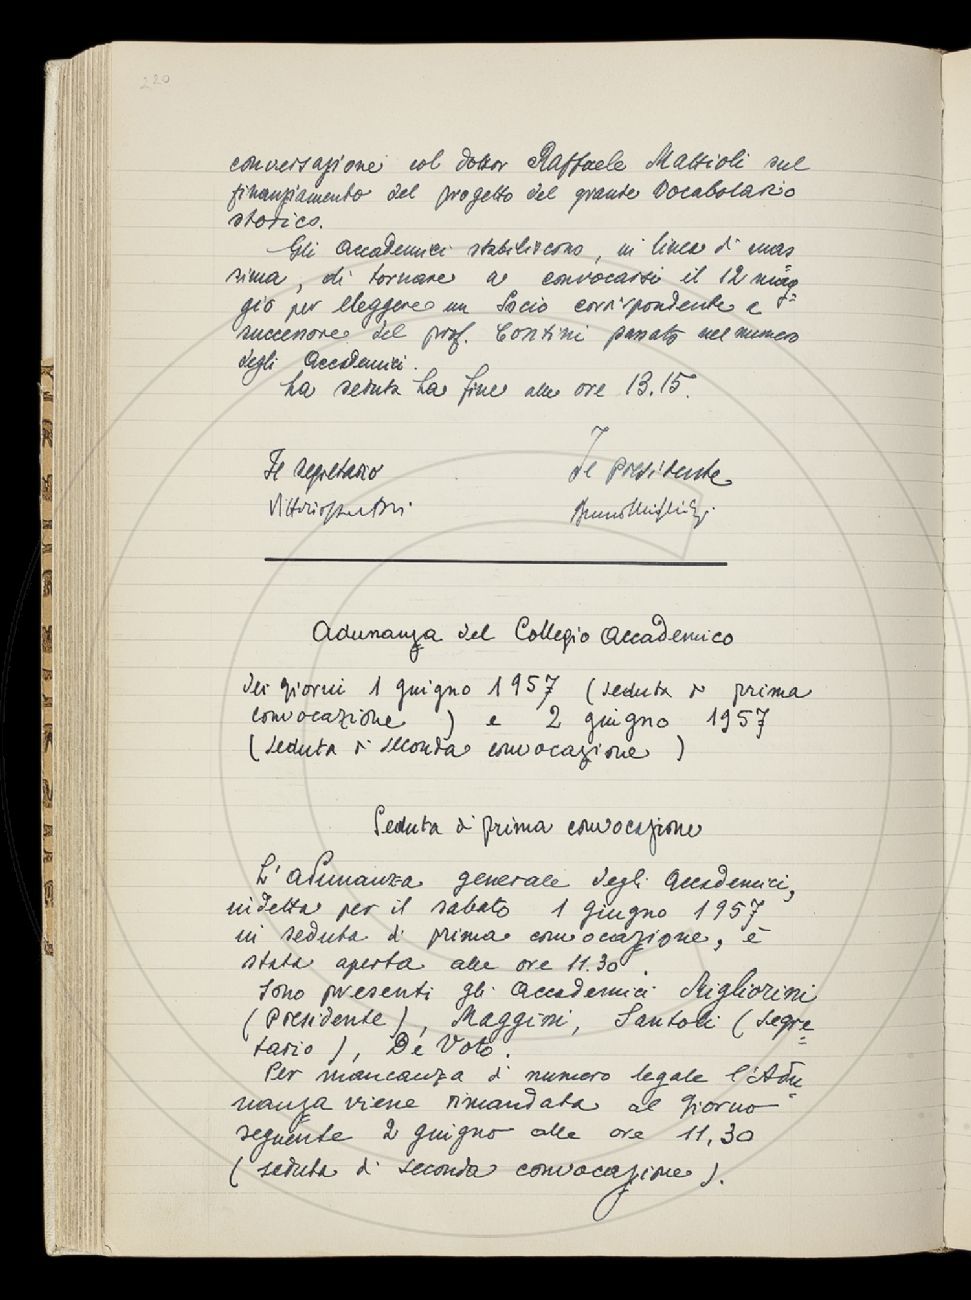 220
conversazione col dottor Raffaele Mattioli sul
finanziamento del progetto del grande Vocabolario
storico.
Gli Accademici stabiliscono, in linea di mas
sima, di tornare a convocarsi il 12 mag=
gio per eleggere un Socio corrispondente e
successore del prof. Contini passato nel numero
degli Accademici.
La seduta ha fine alle ore 13.15.
Il Segretario Il Presidente
Vittorio Santoli Bruno Migliorini
Adunanza del Collegio Accademico
dei giorni 1 giugno 1957 (seduta di prima
convocazione) e 2 giugno 1957
(seduta di seconda convocazione)
Seduta di prima convocazione
L'Adunanza generale degli Accademici,
indetta per il sabato 1 giugno 1957
in seduta di prima convocazione, è
stata aperta alle ore 11.30.
Sono presenti gli Accademici Migliorini
(Presidente), Maggini, Santoli (Segre=
tario), De Voto.
Per mancanza di numero legale l'Adu=
nanza viene rimandata al giorno
seguente 2 giugno alle ore 11,30
(seduta di seconda convocazione).